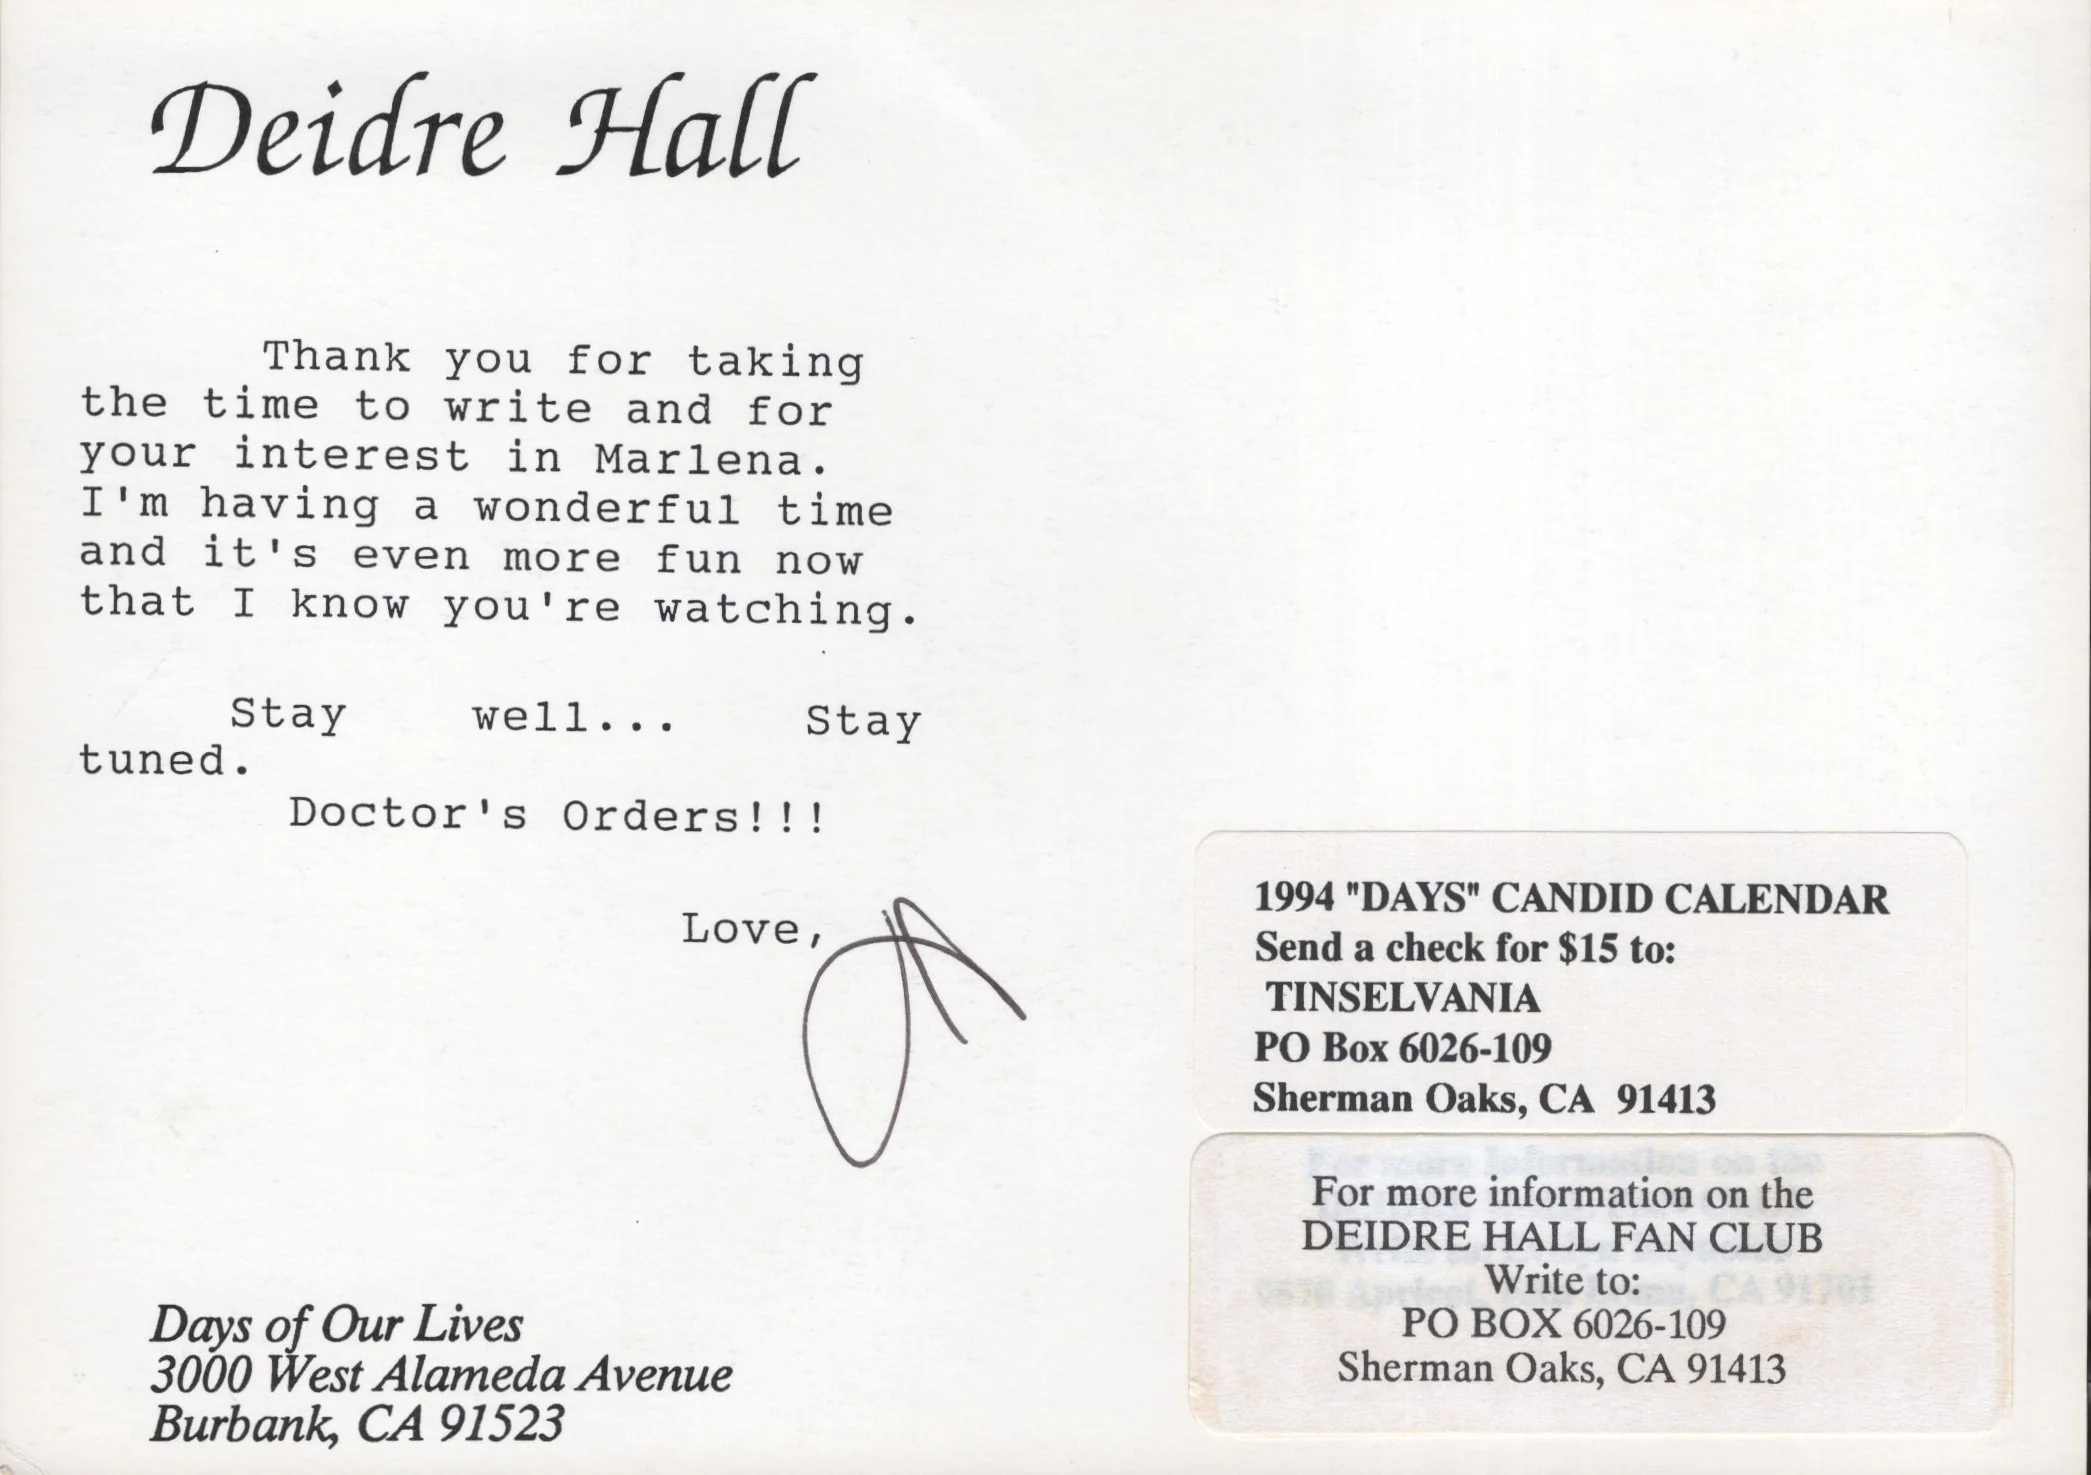 Deidre Hall
Thank you for taking
the time to write and for
your interest in Marlena.
I'm having a wonderful time
and it's even more fun now
that I know you're watching.
Stay well... Stay
tuned.
Doctor's Orders!!!
Love,
Days of Our Lives
3000 West Alameda Avenue
Burbank, CA 91523
1994 "DAYS" CANDID CALENDAR
Send a check for $15 to:
TINSELVANIA
PO Box 6026-109
Sherman Oaks, CA 91413
For more information on the
For more information on the
DEIDRE HALL FAN CLUB
Write to:
PO BOX 6026-109
Sherman Oaks, CA 91413